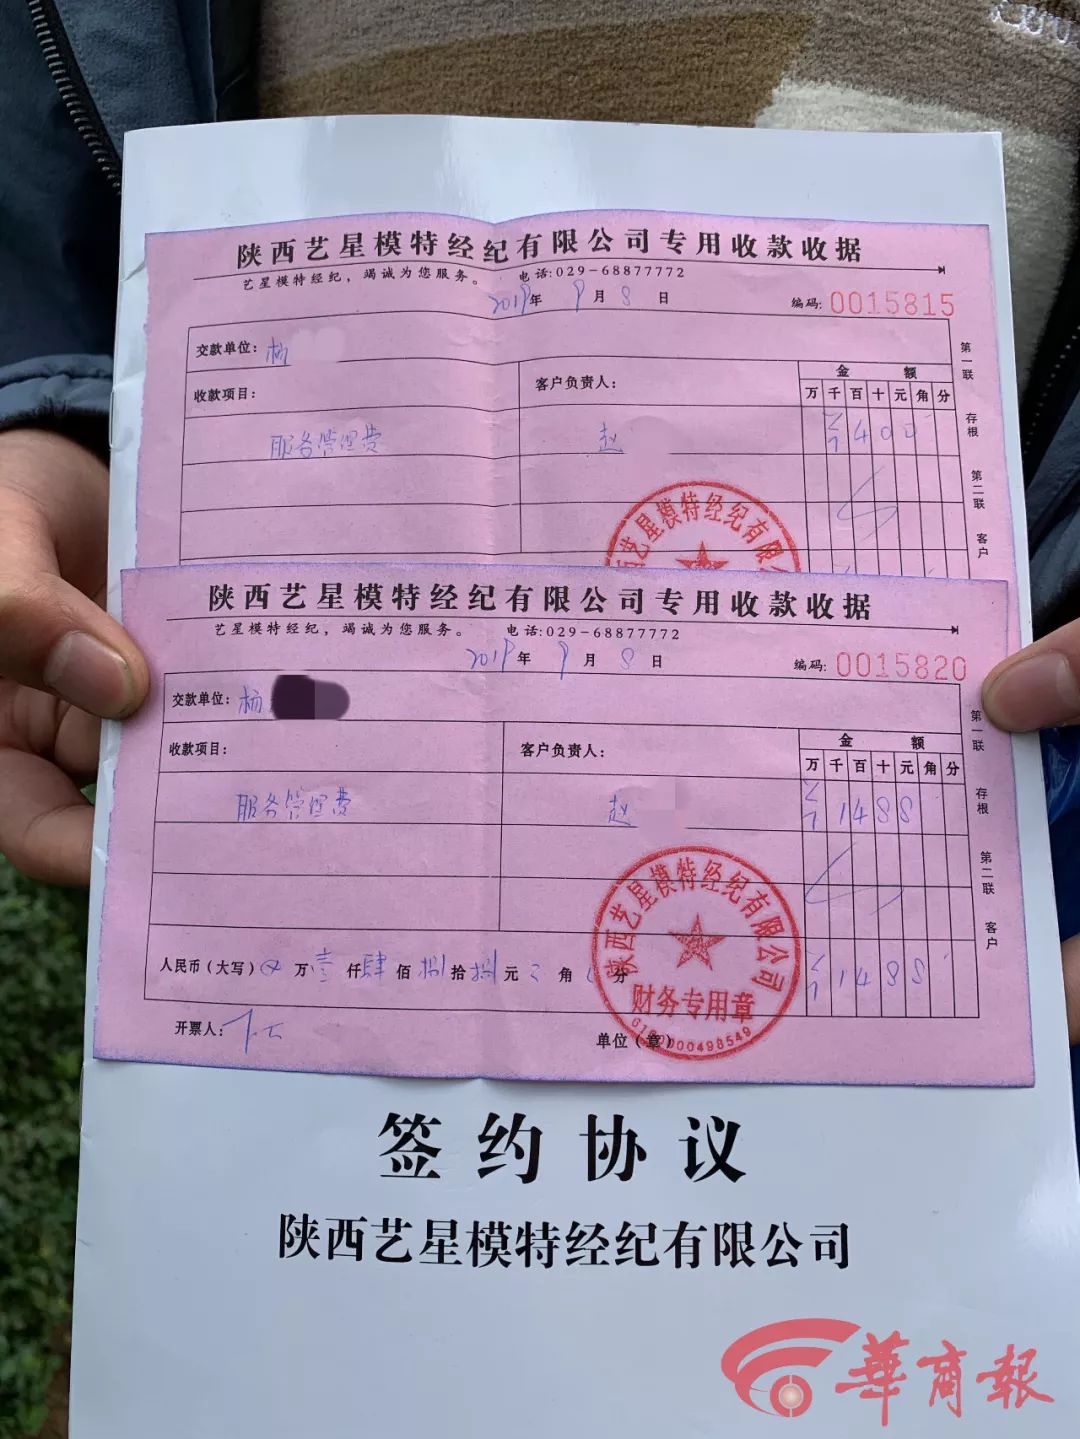 陕西艺星模特经纪有限公司专用收款收据
艺星模特经纪，竭诚为您服务。 电话:029-68877772
2019年 9月 8日 编码: 0015815
交款单位: 杨
收款项目: 客户负责人: 金 额
万 千 百 十 元 角 分
服务管理费 赵 400
第一联 存根 第二联 客户
西艺星模特经纪有限公
陕西艺星模特经纪有限公司专用收款收据
艺星模特经纪，竭诚为您服务。 电话:029-68877772
2019年 9月 8日 编码: 0015820
交款单位: 杨
收款项目: 客户负责人: 金 额
万 千 百 十 元 角 分
服务管理费 赵 1488
第一联 存根 第二联 客户
陕西艺星模特经纪有限公司
财务专用章
人民币(大写) 万 壹 仟 肆 佰 捌 拾 捌 元 角 分 1488
开票人: 单位(章)
签约协议
陕西艺星模特经纪有限公司
華商報